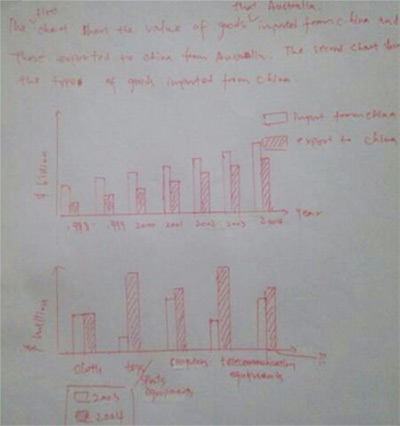 first that Australia.
The chart shows the value of goods imported from china and
those exported to china from Australia. The second chart shows
the types of goods imported from China.
import from china
export to china
$ billion
1998 1999 2000 2001 2002 2003 2004 year
$ million
cloth toys/ computers telecommunication
sports equipments equipments
2003
2004